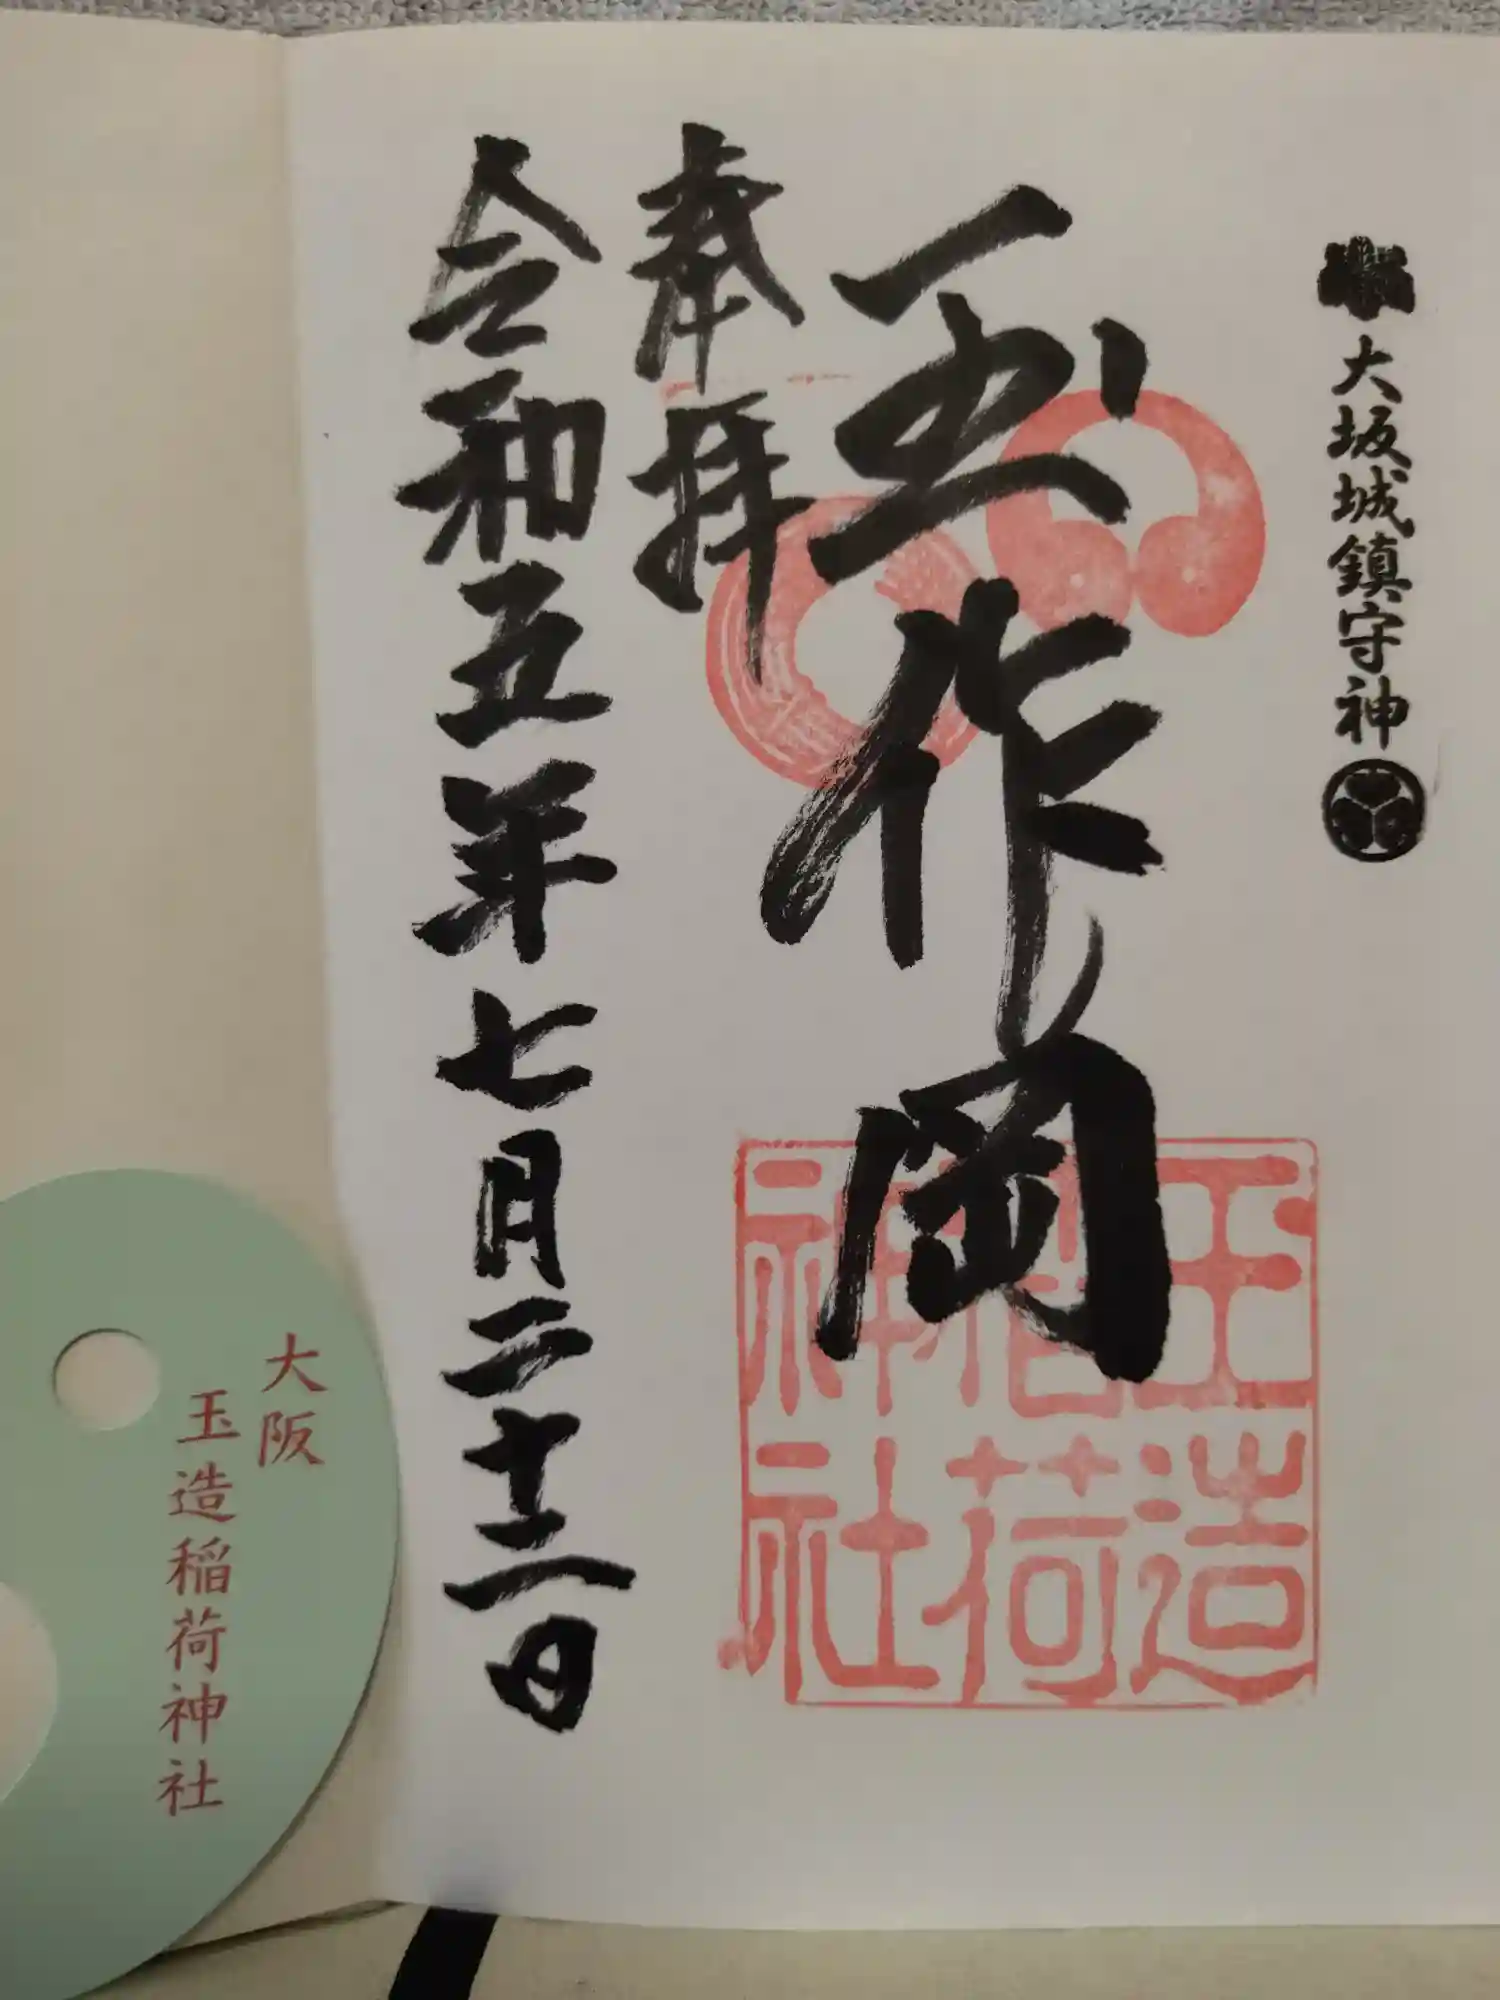 大坂城鎮守神
玉作岡
玉造
稲荷
神社
奉拝
令和五年七月二十二日
大阪
玉造稲荷神社